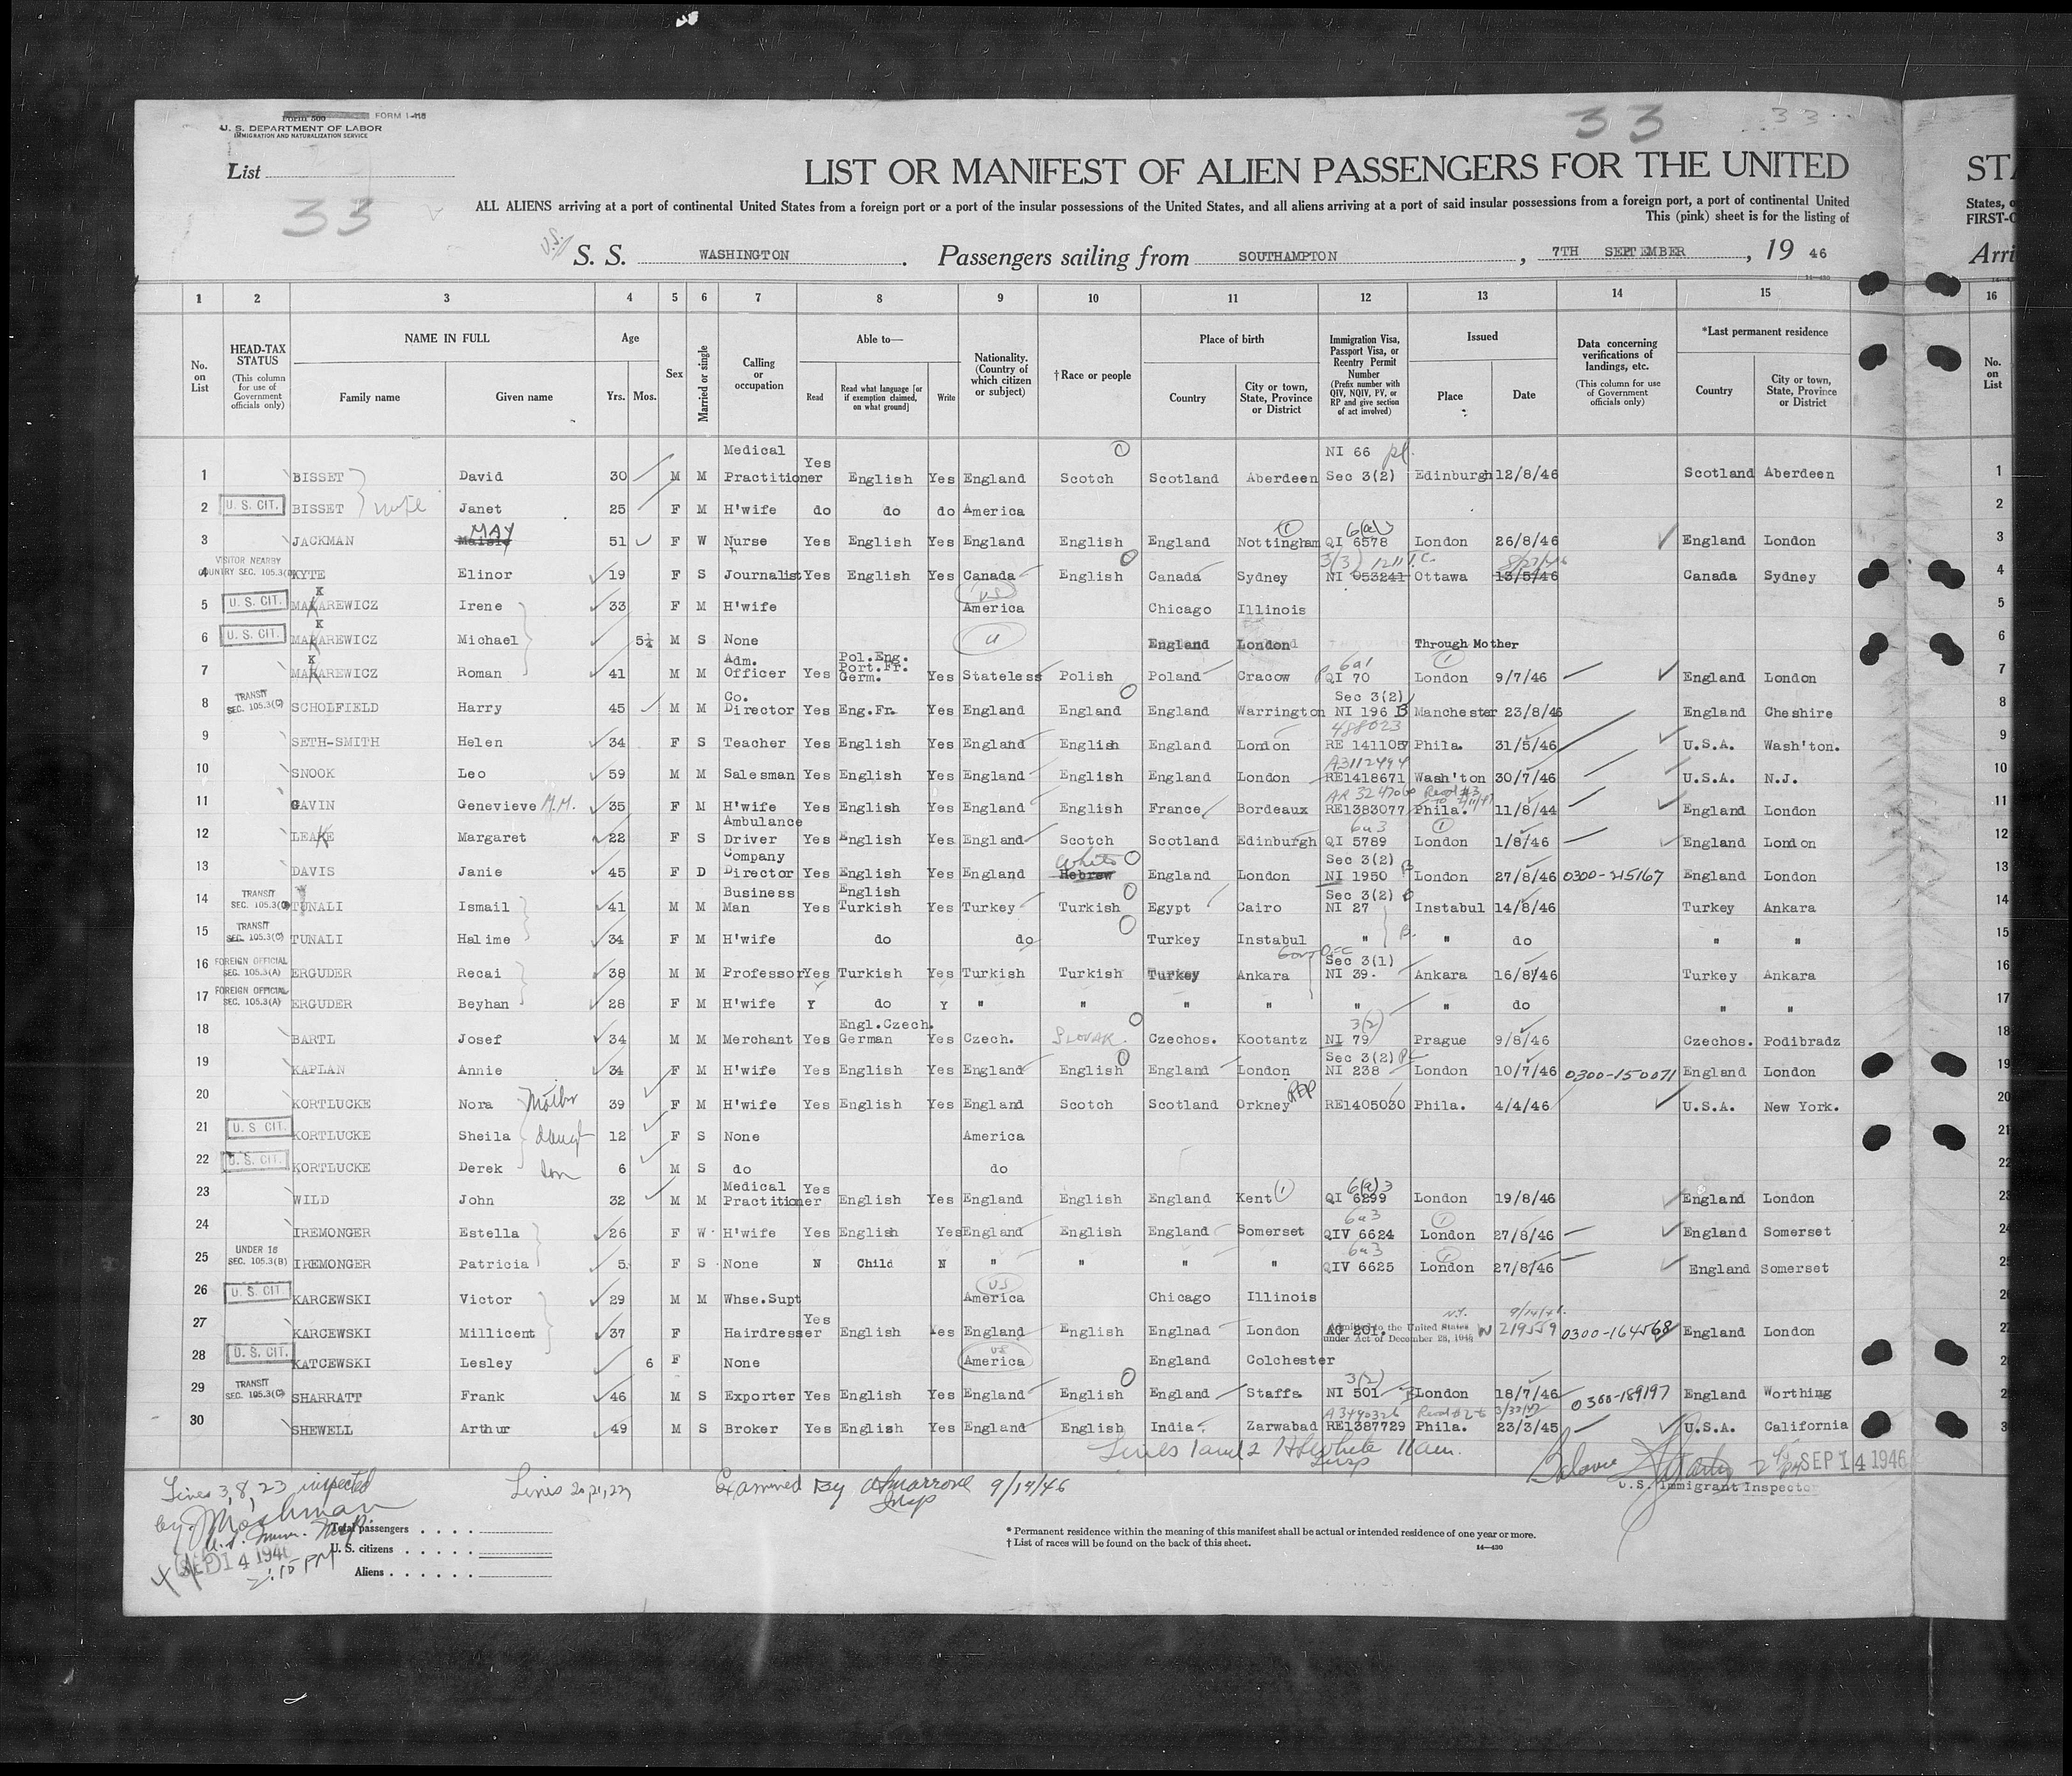 Form 500 FORM I-418
U. S. DEPARTMENT OF LABOR
IMMIGRATION AND NATURALIZATION SERVICE
33 33
List
33
LIST OR MANIFEST OF ALIEN PASSENGERS FOR THE UNITED
ALL ALIENS arriving at a port of continental United States from a foreign port or a port of the insular possessions of the United States, and all aliens arriving at a port of said insular possessions from a foreign port, a port of continental United
This (pink) sheet is for the listing of
U.S. S. S. WASHINGTON. Passengers sailing from SOUTHAMPTON, 7TH SEPTEMBER, 19 46
STA
States, o
FIRST-C
Arri
14—430
1 2 3 4 5 6 7 8 9 10 11 12 13 14 15 16
No. on List
HEAD-TAX STATUS (This column for use of Government officials only)
NAME IN FULL Family name Given name
Age Yrs. Mos.
Sex
Married or single
Calling or occupation
Able to— Read Read what language [or if exemption claimed, on what ground] Write
Nationality. (Country of which citizen or subject)
†Race or people
Place of birth Country City or town, State, Province or District
Immigration Visa, Passport Visa, or Reentry Permit Number (Prefix number with QIV, NQIV, PV, or RP and give section of act involved)
Issued Place Date
Data concerning verifications of landings, etc. (This column for use of Government officials only)
*Last permanent residence Country City or town, State, Province or District
No. on List
1 BISSET David 30 M M Medical Practitioner Yes English Yes England Scotch Scotland Aberdeen NI 66 Sec 3(2) Edinburgh 12/8/46 Scotland Aberdeen 1
2 U. S. CIT. BISSET wife Janet 25 F M H'wife do do do America 2
3 JACKMAN Maisie MAY 51 F W Nurse Yes English Yes England English England Nottingham 6(a)3 QI 6578 London 26/8/46 England London 3
4 VISITOR NEARBY COUNTRY SEC. 105.3( KYTE Elinor 19 F S Journalist Yes English Yes Canada English Canada Sydney 3(3) NI 053241 Ottawa 13/5/46 Canada Sydney 4
5 U. S. CIT. MAKAREWICZ K Irene 33 F M H'wife US America Chicago Illinois 5
6 U. S. CIT. MAKAREWICZ K Michael 5½ M S None England London Through Mother 6
7 MAKAREWICZ K Roman 41 M M Adm. Officer Yes Pol.Eng. Port.Fr. Germ. Yes Stateless Polish Poland Cracow 6a1 QI 70 London 9/7/46 England London 7
8 TRANSIT SEC. 105.3(C) SCHOLFIELD Harry 45 M M Co. Director Yes Eng.Fr. Yes England England England Warrington Sec 3(2) NI 196 B Manchester 23/8/46 England Cheshire 8
9 SETH-SMITH Helen 34 F S Teacher Yes English Yes England English England London 488023 RE 141105 Phila. 31/5/46 U.S.A. Wash'ton. 9
10 SNOOK Leo 59 M M Salesman Yes English Yes England English England London A3112494 RE1418671 Wash'ton 30/7/46 U.S.A. N.J. 10
11 GAVIN Genevieve M.M. 35 F M H'wife Yes English Yes England English France Bordeaux RE1383077 Phila. 11/8/44 England London 11
12 LEAKE Margaret 22 F S Ambulance Driver Yes English Yes England Scotch Scotland Edinburgh 6a3 QI 5789 London 1/8/46 England London 12
13 DAVIS Janie 45 F D Company Director Yes English Yes England White Hebrew England London Sec 3(2) NI 1950 B London 27/8/46 0300-215167 England London 13
14 TRANSIT SEC. 105.3(C) TUNALI Ismail 41 M M Business Man Yes English Turkish Yes Turkey Turkish Egypt Cairo Sec 3(2) NI 27 Instabul 14/8/46 Turkey Ankara 14
15 TRANSIT SEC. 105.3(C) TUNALI Halime 34 F M H'wife do do Turkey Instabul " B. " do " " 15
16 FOREIGN OFFICIAL SEC. 105.3(A) ERGUDER Recai 38 M M Professor Yes Turkish Yes Turkish Turkish Turkey Ankara Sec 3(1) NI 39. Ankara 16/8/46 Turkey Ankara 16
17 FOREIGN OFFICIAL SEC. 105.3(A) ERGUDER Beyhan 28 F M H'wife Y do Y " " " " " " do " " 17
18 BARTL Josef 34 M M Merchant Yes Engl.Czech. German Yes Czech. SLOVAK Czechos. Kootantz 3(2) NI 79 Prague 9/8/46 Czechos. Podibradz 18
19 KAPLAN Annie 34 F M H'wife Yes English Yes England English England London. Sec 3(2) NI 238 London 10/7/46 0300-150071 England London 19
20 KORTLUCKE Nora Mother 39 F M H'wife Yes English Yes England Scotch Scotland Orkney REP RE1405030 Phila. 4/4/46 U.S.A. New York. 20
21 U. S. CIT. KORTLUCKE Sheila daugt 12 F S None America 21
22 U. S. CIT. KORTLUCKE Derek son 6 M S do do 22
23 WILD John 32 M M Medical Practitioner Yes English Yes England English England Kent 6(a)3 QI 6299 London 19/8/46 England London 23
24 IREMONGER Estella 26 F W H'wife Yes English Yes England English England Somerset 6a3 QIV 6624 London 27/8/46 England Somerset 24
25 UNDER 16 SEC. 105.3(B) IREMONGER Patricia 5 F S None N Child N " " " " 6a3 QIV 6625 London 27/8/46 England Somerset 25
26 U. S. CIT. KARCEWSKI Victor 29 M M Whse.Supt US America Chicago Illinois
27 KARCEWSKI Millicent 37 F Hairdresser Yes English Yes England English Englnad London AG 201. Admitted to the United States under Act of December 28, 1945 N.Y. 219559 0300-164568 England London
28 U. S. CIT. KATCEWSKI Lesley 6 F None US America England Colchester
29 TRANSIT SEC. 105.3(C) SHARRATT Frank 46 M S Exporter Yes English Yes England English England Staffs 3(2) NI 501 London 18/7/46 0300-189197 England Worthing
30 SHEWELL Arthur 49 M S Broker Yes English Yes England English India Zarwabad RE1387729 Phila. 23/3/45 U.S.A. California
Lines 1 and 2 White 11am. Insp
SEP 14 1946
U.S. Immigrant Inspector
Lines 3, 8, 23 inspected
by
SEP 14 1946
2:15 PM
Lines 20, 21, 22,
Examined By Insp 9/14/46
Total passengers . . . .
U. S. citizens . . . . .
Aliens . . . . . .
* Permanent residence within the meaning of this manifest shall be actual or intended residence of one year or more.
† List of races will be found on the back of this sheet.
14—430